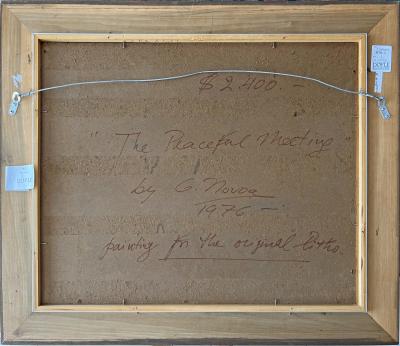 $2.400.-
"The Peaceful Meeting"
by G. Novoa
1976 -
painting for the original litho.